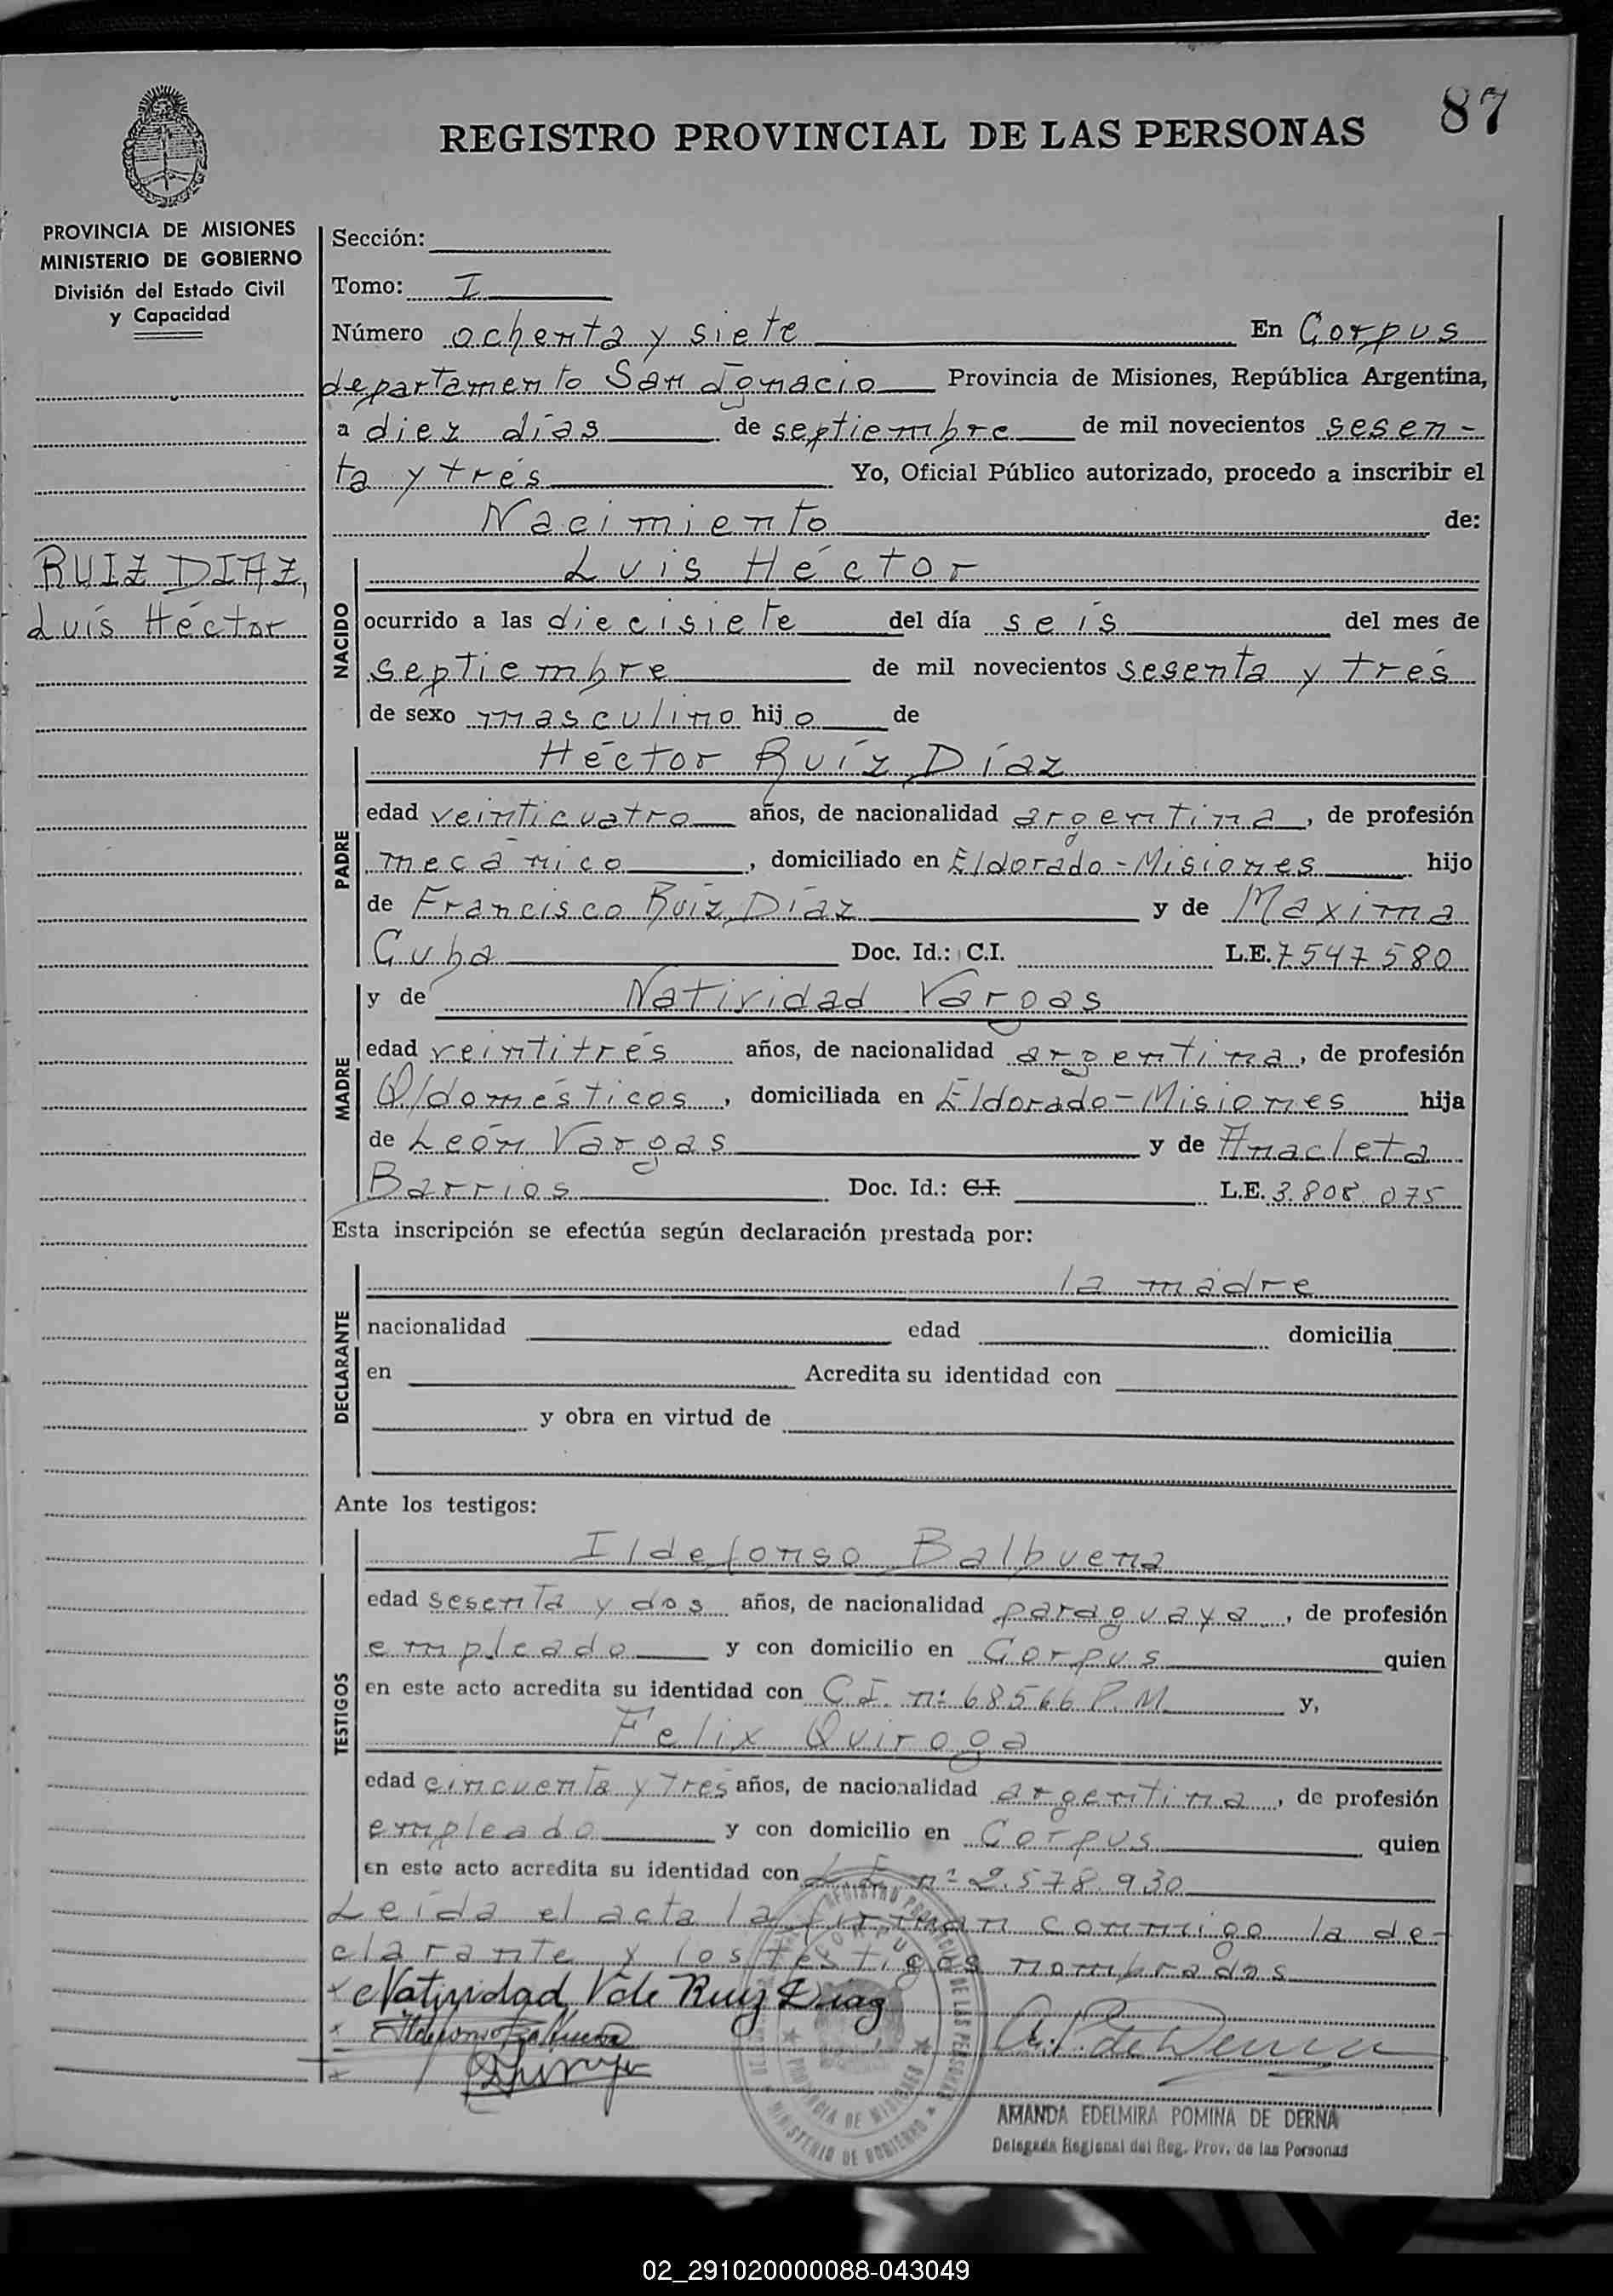 87
REGISTRO PROVINCIAL DE LAS PERSONAS
PROVINCIA DE MISIONES
MINISTERIO DE GOBIERNO
División del Estado Civil
y Capacidad
RUIZ DIAZ,
Luís Héctor
Sección:
Tomo: I
Número ochenta y siete En Corpus
departamento San Ignacio Provincia de Misiones, República Argentina,
a diez días de septiembre de mil novecientos sesen-
ta y trés Yo, Oficial Público autorizado, procedo a inscribir el
Nacimiento de:
NACIDO
Luis Héctor
ocurrido a las diecisiete del día seis del mes de
septiembre de mil novecientos sesenta y trés
de sexo masculino hijo de
PADRE
Héctor Ruíz Díaz
edad veinticuatro años, de nacionalidad argentina, de profesión
mecánico, domiciliado en Eldorado-Misiones hijo
de Francisco Ruíz Díaz y de Maxima
Cuba Doc. Id.: C.I. L.E. 7547580
MADRE
y de Natividad Vargas
edad veintitrés años, de nacionalidad argentina, de profesión
Q/domésticos, domiciliada en Eldorado-Misiones hija
de León Vargas y de Anacleta
Barrios Doc. Id.: C.I. L.E. 3.808.075
Esta inscripción se efectúa según declaración prestada por:
DECLARANTE
la madre
nacionalidad edad domicilia
en Acredita su identidad con
y obra en virtud de
Ante los testigos:
TESTIGOS
Ildefonso Balbuena
edad sesenta y dos años, de nacionalidad paraguaya, de profesión
empleado y con domicilio en Corpus quien
en este acto acredita su identidad con C.I. nº 68566 P.M. y,
Felix Quiroga
edad cincuenta y trés años, de nacionalidad argentina, de profesión
empleado y con domicilio en Corpus quien
en este acto acredita su identidad con L.E. nº 2.578.930
Leída el acta la firman conmigo la de-
clarante y los testigos nombrados
Natividad V de Ruiz Diaz
Ildefonso Balbuena
REGISTRO PROVINCIAL DE LAS PERSONAS
CORPUS
PROVINCIA DE MISIONES
MINISTERIO DE GOBIERNO
AMANDA EDELMIRA POMINA DE DERNA
Delegada Regional del Reg. Prov. de las Personas
02_291020000088-043049